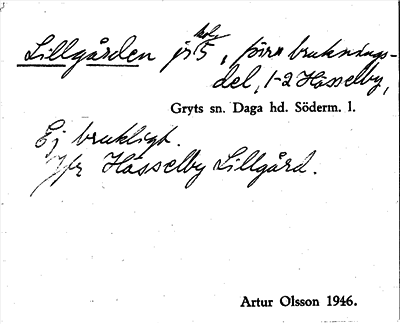 Lillgården js 5, förr bruknings-
del, 1-2 Hässelby,
Gryts sn. Daga hd. Söderm. l.
Ej brukligt.
Jfr Hässelby Lillgård.
Artur Olsson 1946.